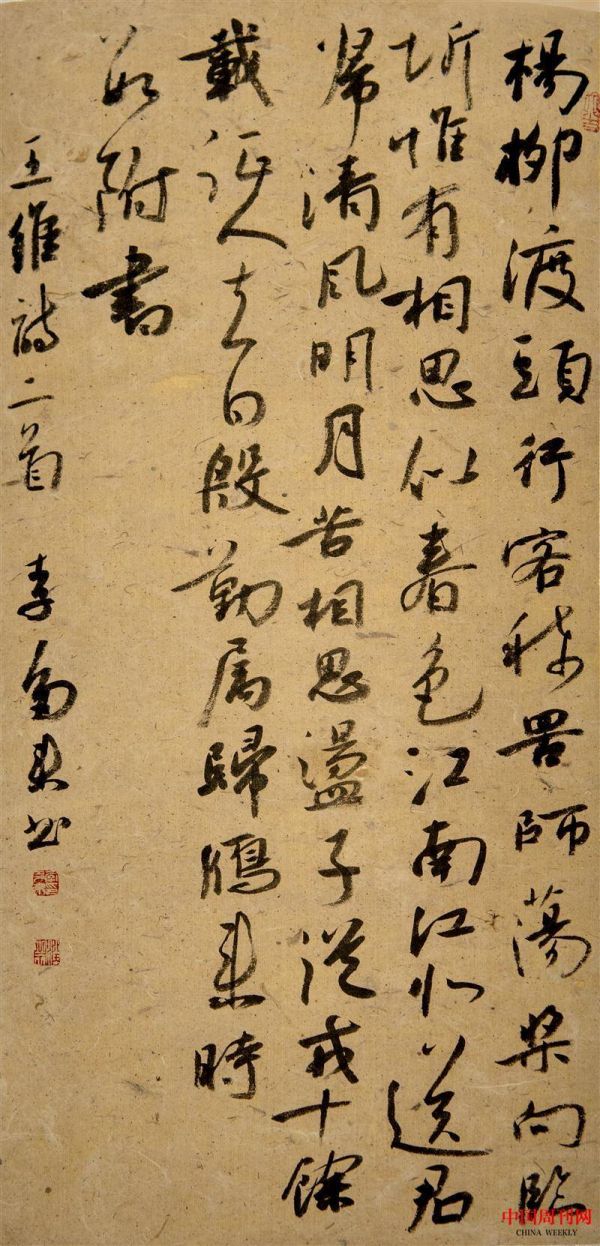 楊柳渡頭行客稀罟師蕩槳向臨
圻惟有相思似春色江南江北送君
帰清風明月苦相思盪子従戎十餘
載征人去日殷勤属歸鴈来時
数附書
王維詩二首 李来书
中国周刊网
CHINA WEEKLY